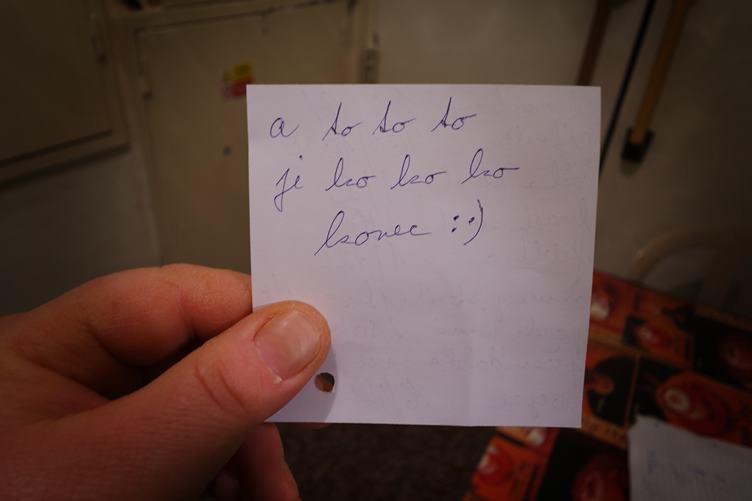 a to to to
je ko ko ko
konec :·)